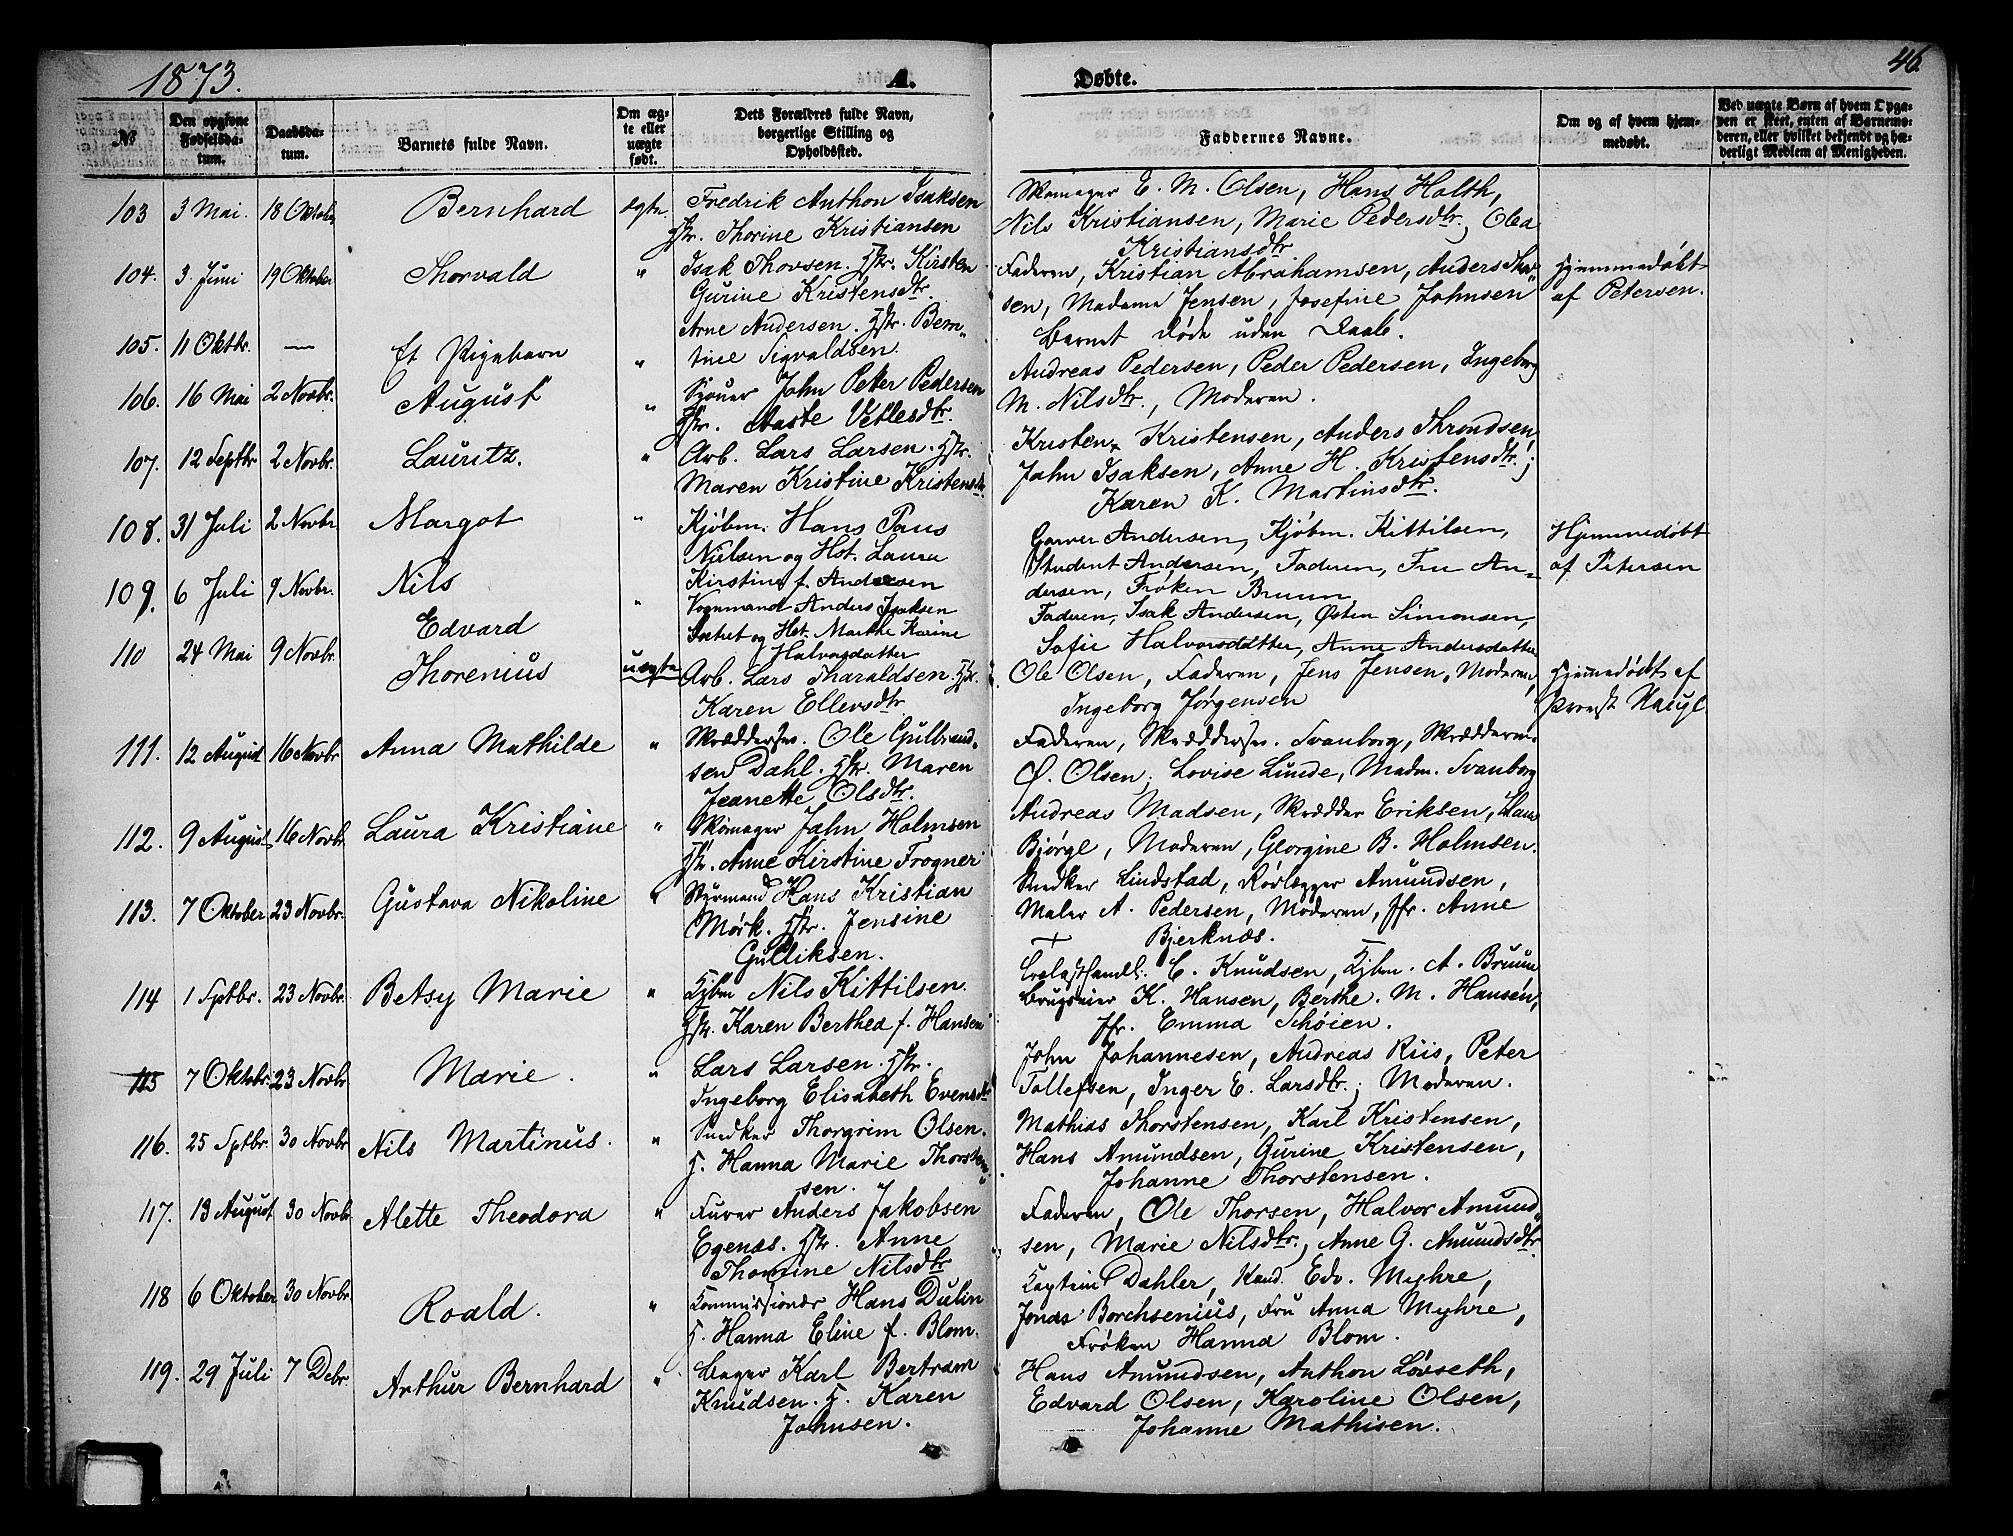 1873.
A.
Døbte.
46.
№
Den opgivne Fødselsdatum.
Daabsdatum.
Barnets fulde Navn.
Om ægte eller uægte født.
Dets Forældres fulde Navn, borgerlige Stilling og Opholdssted.
Faddernes Navne.
Om og af hvem hjemmedøbt.
Ved uægte Børn af hvem Opgaven er skeet, enten af Barnemoderen, eller hvilket bekjendt og hæderligt Medlem af Menigheden.
103 3 Mai. 18 Oktob. Bernhard ægte Fredrik Anthon Isaksen
Hstr. Thorine Kristiansen
Skomager E. M. Olsen, Hans Holth,
Nils Kristiansen, Marie Pedersdtr., Olea
Kristiansdtr.
104. 3 Juni 19 Oktober Thorvald " Isak Thovsen. Hstr. Kirsten
Gurine Kristensdtr.
Faderen, Kristian Abrahamsen, Anders
sen, Madame Jensen, Josefine Johnsen
Hjemmedøbt
af Petersen.
105. 11 Oktbr. — Et Pigebarn " Arne Andersen. Hstr. Bern-
tine Sigvaldsen.
Barnet døde uden Daab.
106. 16 Mai 2 Novbr. August " Sjouer John Peter Pedersen
Hstr. Aaste Vetlesdtr.
Andreas Pedersen, Peder Pedersen, Ingeborg
M. Nilsdtr., Moderen.
107. 12 Septbr 2 Novbr. Lauritz. " Arb. Lars Larsen. Hstr.
Maren Kristine Kristensdtr.
Kristen Kristensen, Anders Throndsen,
John Isaksen, Anne H. Kristensdtr.;
Karen K. Martinsdtr.
108. 31 Juli 2 Novbr Margot " Kjøbm. Hans Paus
Nielsen og Hst. Laura
Kirstine f. Andersen
Garver Andersen, Kjøbm. Kittilsen,
Student Andersen, Faderen, Fru An-
dersen, Frøken Bruun
Hjemmedøbt
af Petersen
109. 6 Juli 9 Novbr. Nils
Edvard " Vognmand Anders Isaksen
og Hst. Marthe Karine
Halvorsdatter
Faderen, Isak Andersen, Østen Simonsen,
Sofie Halvorsdatter, Anne Andersdatter
110 24 Mai 9 Novbr. Thorenius uægte Arb. Lars Tharaldsen. Hstr.
Karen Ellevsdtr.
Ole Olsen, Faderen, Jens Jensen, Moderen,
Ingeborg Jørgensen
Hjemmedøbt af
Provst Hauge
111. 12 August 16 Novbr. Anna Mathilde " Skræddersv. Ole Gulbrand-
sen Dahl. Hstr. Maren
Jeanette Olsdtr.
Faderen, Skræddersv. Svanborg, Skræddersv.
Ø. Olsen, Lovise Lunde, Madm. Svanborg
112. 9 August 16 Novbr Laura Kristiane " Skomager John Holmsen
Hstr. Anne Kirstine Frogner
Andreas Madsen, Skrædder Eriksen, Hans
Bjørge, Moderen, Georgine B. Holmsen.
113. 7 Oktober 23 Novbr. Gustava Nikoline " Styrmand Hans Kristian
Mørk. Hstr. Jensine
Gulliksen.
Snedker Lindstad, Rørlægger Amundsen,
Maler A. Pedersen, Moderen, Jfr. Anne
Bjerknæs.
114 1 Sptbr. 23 Novbr. Betsy Marie " Kjbm Nils Kittilsen.
Hstr. Karen Berthea f. Hansen
Trælasthandl. C. Knudsen, Kjbm. A. Bruun
Brugseier K. Hansen, Berthe. M. Hansen,
Jfr. Emma Schøien.
115 7 Oktobr. 23 Novbr Marie. " Lars Larsen. Hstr.
Ingeborg Elisabeth Evensdtr
John Johannesen, Andreas Riis, Peter
Tollefsen, Inger E. Larsdtr.; Moderen.
116. 25 Sptbr. 30 Novbr Nils Martinus. " Snedker Thorgrim Olsen.
H. Hanna Marie Thorsten-
sen.
Mathias Thorstensen, Karl Kristensen,
Hans Amundsen, Gurine Kristensen,
Johanne Thorstensen.
117. 13 August 30 Novbr. Alette Theodora " Furer Anders Jakobsen
Egenæs. Hstr. Anne
Thomine Nilsdtr
Faderen, Ole Thorsen, Halvor Amund-
sen, Marie Nilsdtr., Anne G. Amundsdtr.
118 6 Oktober 30 Novbr. Roald. " Kommissionær Hans Dulin
H. Hanna Eline f. Blom.
Kaptein Dahler, Kand. Edv. Myhre,
Jonas Borchsenius, Fru Anna Myhre,
Frøken Hanna Blom.
119. 29 Juli 7 Debr. Arthur Bernhard " Bager Karl Bertram
Knudsen. H. Karen
Johnsen.
Hans Amundsen, Anthon Løvseth,
Edvard Olsen, Karoline Olsen,
Johanne Mathisen.